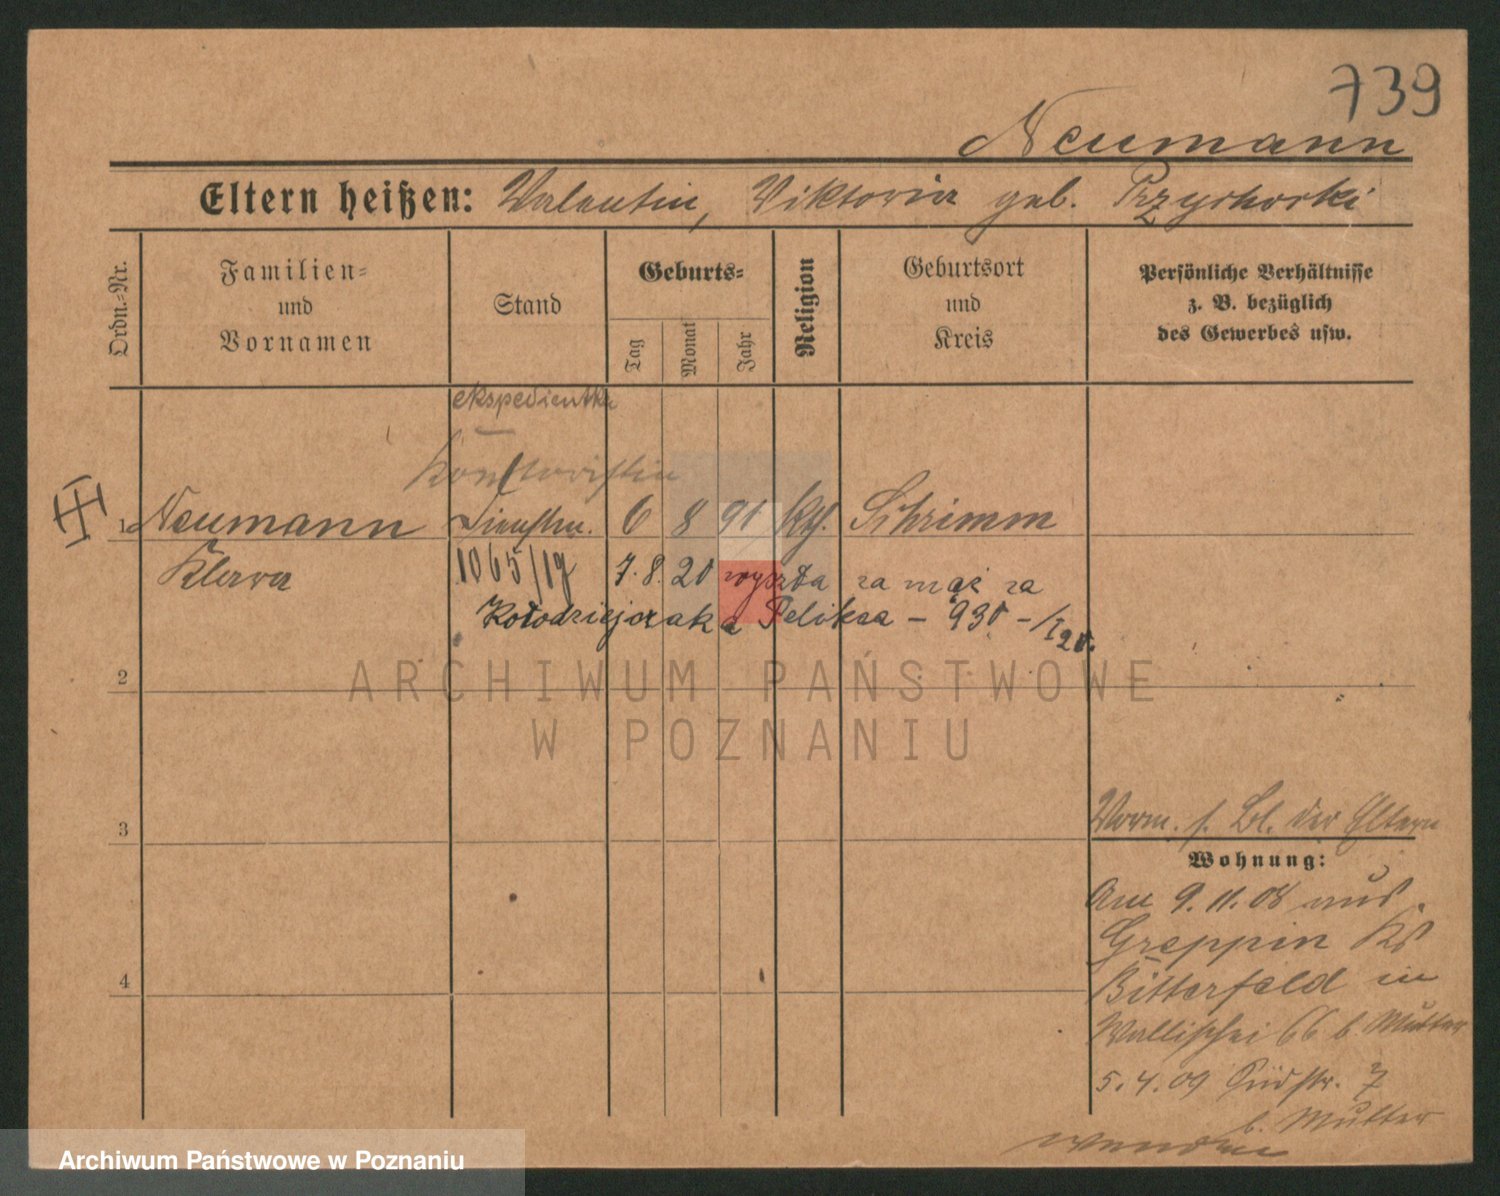 739
Neumann
Eltern heißen: Valentin, Viktoria geb. Przyborski
Ordn.-Nr.
Familien-
und
Vornamen
Stand
Geburts-
Tag
Monat
Jahr
Religion
Geburtsort
und
Kreis
Persönliche Verhältnisse
z. B. bezüglich
des Gewerbes usw.
ekspedientka
Kontoristin
1 Neumann Dienstm. 6 8 91 kth. Schrimm
Klara 1065/19 7.8.20 wyszła za mąż za
Kołodziejczaka Feliksa – 930 – /I 20.
2
3
4
Vorm. s. Bl. der Eltern
Wohnung:
Am 9.11.08 aus
Greppin Ks
Bitterfeld in
Wallischei 66 b. Mutter
5.4.09 Südstr. 7
b. Mutter
wenden
ARCHIWUM PAŃSTWOWE
W POZNANIU
Archiwum Państwowe w Poznaniu